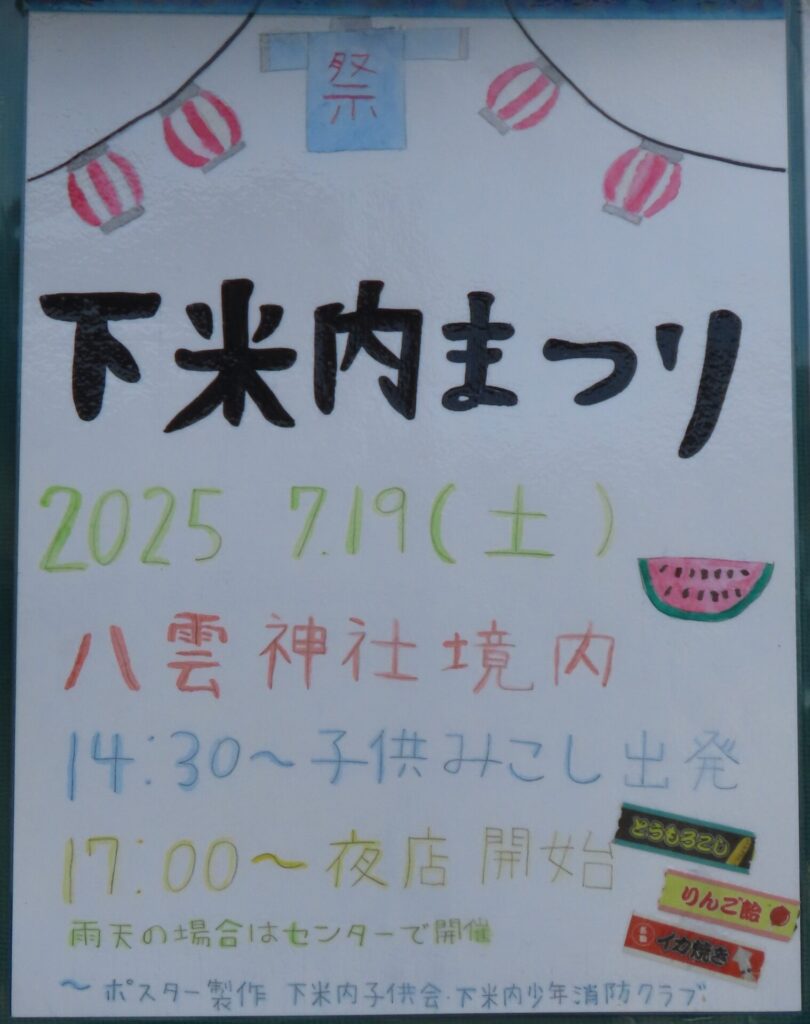 祭
下米内まつり
2025 7.19(土)
八雲神社境内
14:30～子供みこし出発
17:00～夜店開始
とうもろこし
りんご飴
イカ焼き
雨天の場合はセンターで開催
～ポスター製作 下米内子供会・下米内少年消防クラブ